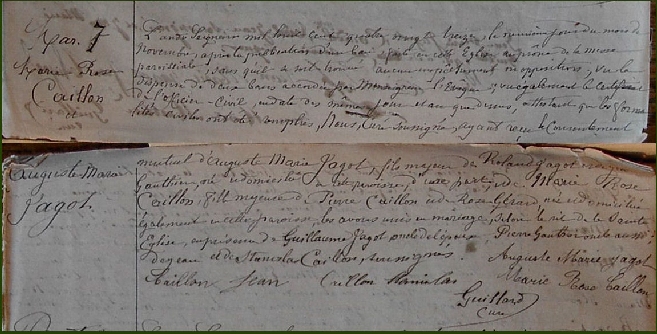 Mar. 7
Marie Rose
Caillon
et
Auguste Marie
Jagot.
L'an du Seigneur mil huit cent quatre vingt treize, le neuvième jour du mois de
Novembre, après la publication d'un ban faite en cette Eglise au prône de la messe
paroissiale, sans qu'il se soit trouvé aucun empêchement ni opposition, vu la
dispense de deux bans accordée par Monseigneur l'Evêque, vu également le certificat
de l'officier Civil, en date des mêmes jour et an que dessus, attestant que les forma-
lités civiles ont été remplies, Nous, Curé soussigné, ayant reçu le Consentement
mutuel d'Auguste Marie Jagot, fils majeur de Roland Jagot et de
Gauthier, né et domicilié en cette paroisse, d'une part; et de Marie Rose
Caillon, fille majeure de Pierre Caillon et de Rose Gérard, née et domiciliée
également en cette paroisse, les avons unis en mariage, selon le rit de la Sainte
Eglise, en présence de Guillaume Jagot oncle de l'époux, Pierre Gauthier oncle aussi,
de Jean et de Stanislas Caillon, soussignés
Auguste Marie Jagot
Caillon Jean Caillon Stanislas Marie Rose Caillon
Guillard
Curé